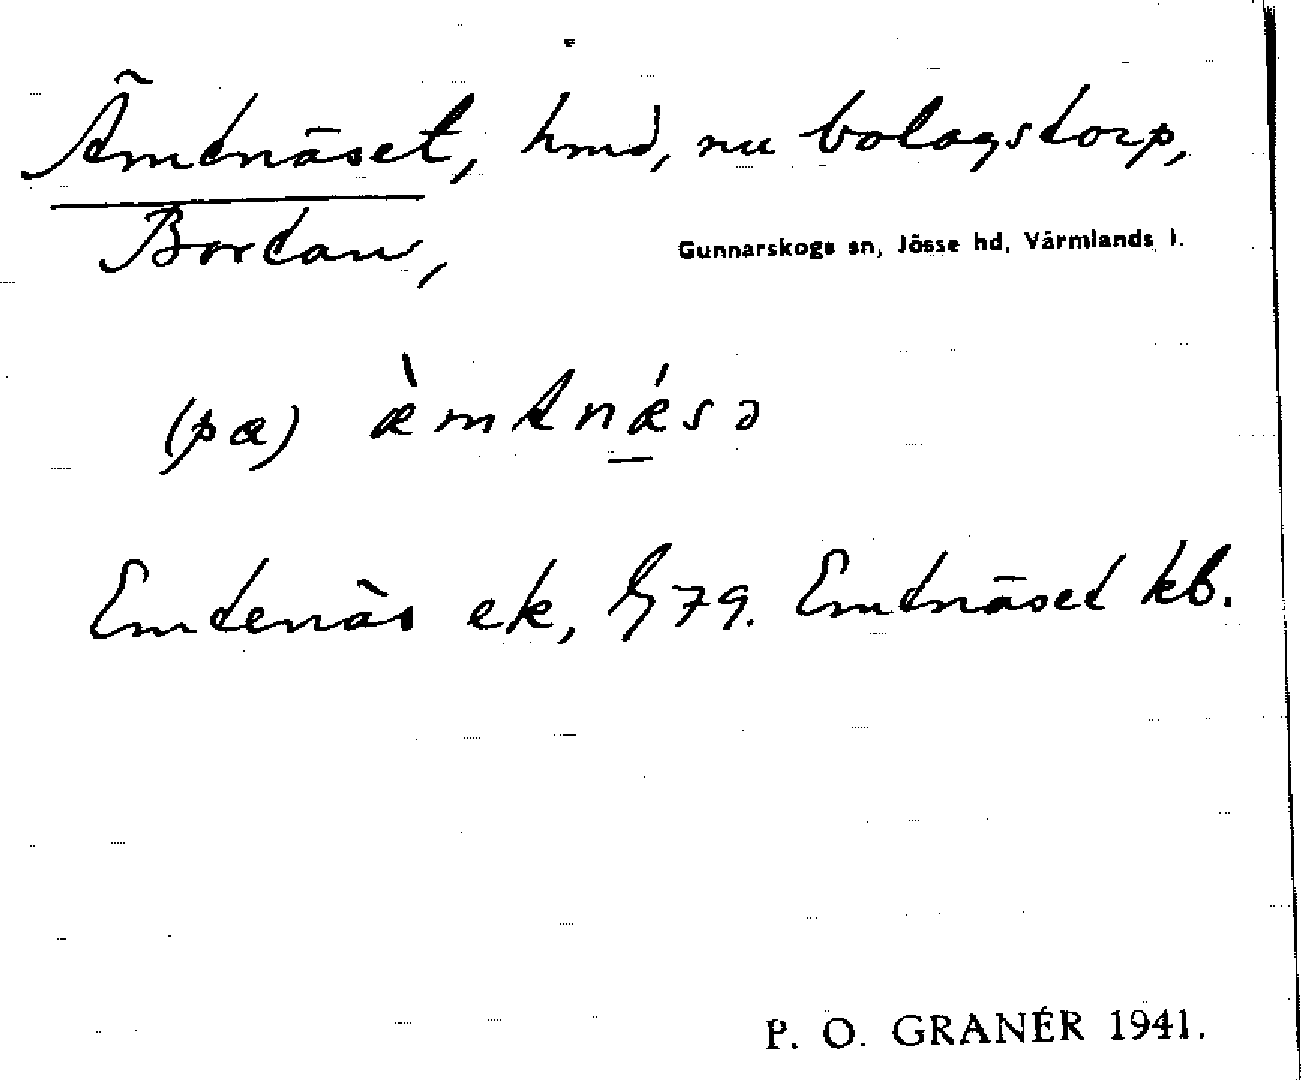 Ämtnäset, hmd, nu bolagstorp,
Bortan,
Gunnarskogs sn, Jösse hd, Värmlands l.
(pæ) æ̀mtnǽsə
Emtenäs ek, G79. Emtnäset kb.
P. O. GRANÉR 1941.